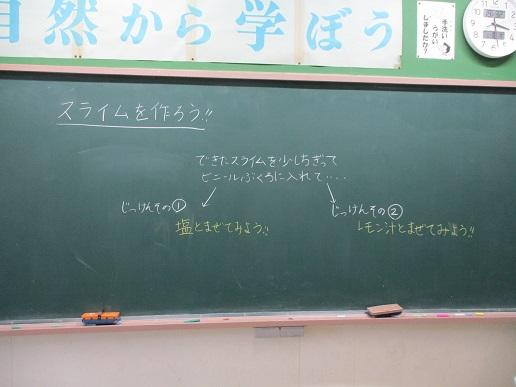 自然から学ぼう
手洗い
うがい
しましたか？
スライムを作ろう!!
できたスライムを少しちぎって
ビニールぶくろに入れて・・・・
じっけんその①
塩とまぜてみよう!!
じっけんその②
レモン汁とまぜてみよう!!